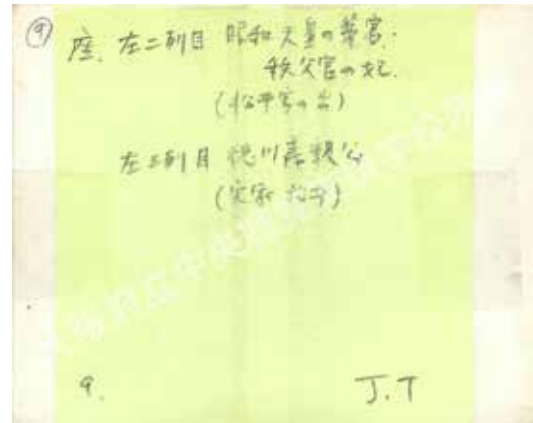 ⑨ 座. 左二列目 昭和天皇の弟宮.
秩父宮の妃.
(松平家の出)
左三列目 徳川義親公
(実家 松平)
9. J.T